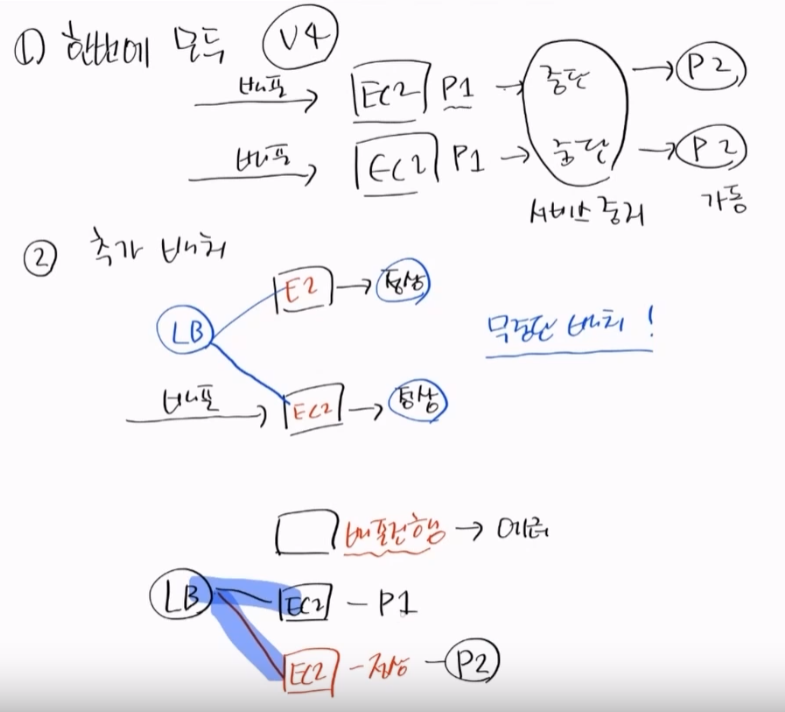 ① 한번에 모두 V4
배포 EC2 P1 → 중단 → P2
배포 EC2 P1 → 중단 → P2
서비스 중지 가동
② 추가 배치
E2 → 정상
LB
무중단 배치!
배포 EC2 → 정상
배포진행 → 에러
LB EC2 - P1
EC2 - 정상 - P2